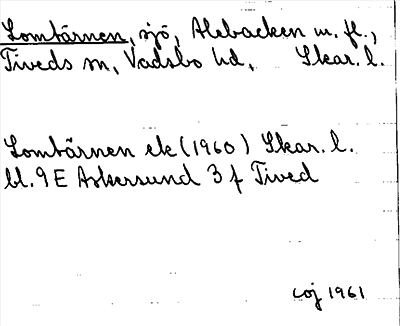 Lomtärnen, sjö, Alebacken m. fl.,
Tiveds sn, Vadsbo hd, Skar. l.
Lomtärnen ek (1960) Skar. l.
bl. 9 E Askersund 3 f Tived
coj 1961